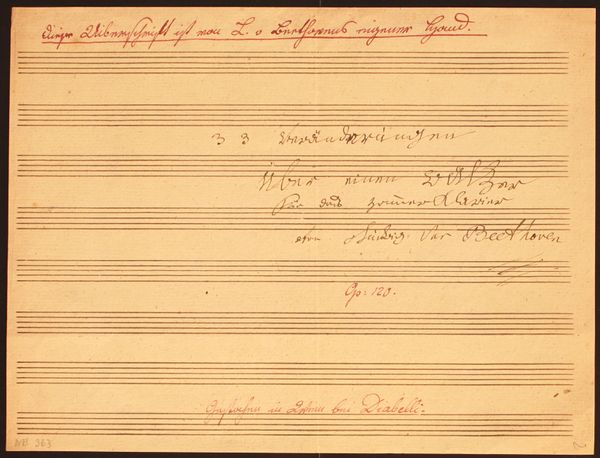 Diese Ueberschrift ist von L. v Beethovens eigener Hand.
33 Veränderungen
über einen Walzer
für das Hammer Klavier
von Ludwig van Beethoven
Op: 120.
Gestochen in Wien bei Diabelli.
NB 363